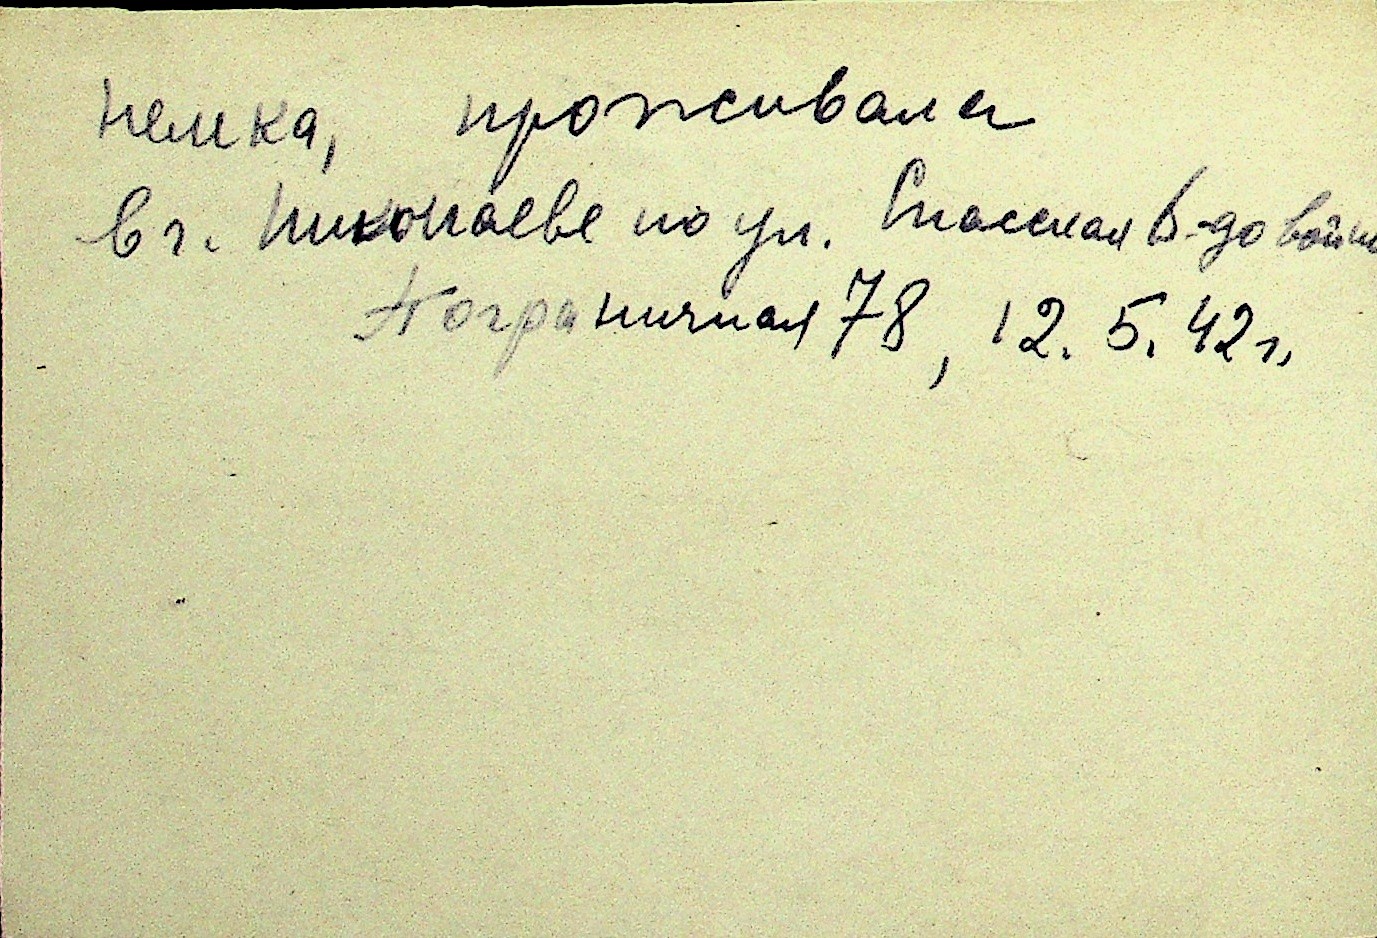 немка, проживала
в г. Николаеве по ул. Спасская 6-до войны
Пограничная 78, 12.5.42г.